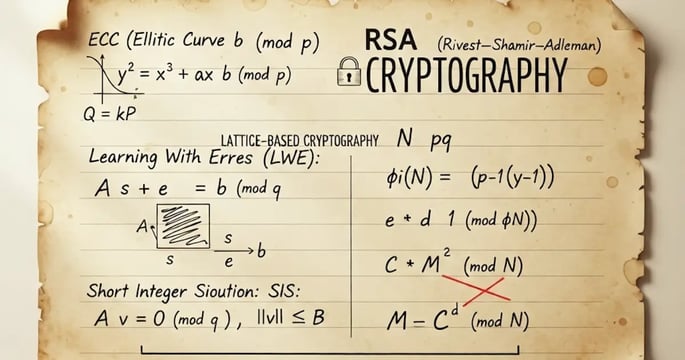 ECC (Ellitic Curve b (mod p)
y² = x³ + ax b (mod p)
Q = kP
RSA (Rivest–Shamir–Adleman)
CRYPTOGRAPHY
LATTICE-BASED CRYPTOGRAPHY
Learning With Erres (LWE):
A s + e = b (mod q
A
s
s
e
b
Short Integer Sioution: SIS:
A v = 0 (mod q), ||v|| ≤ B
N pq
ϕi(N) = (p-1(y-1))
e + d 1 (mod ϕN))
C + M² (mod N)
M = Cᵈ (mod N)